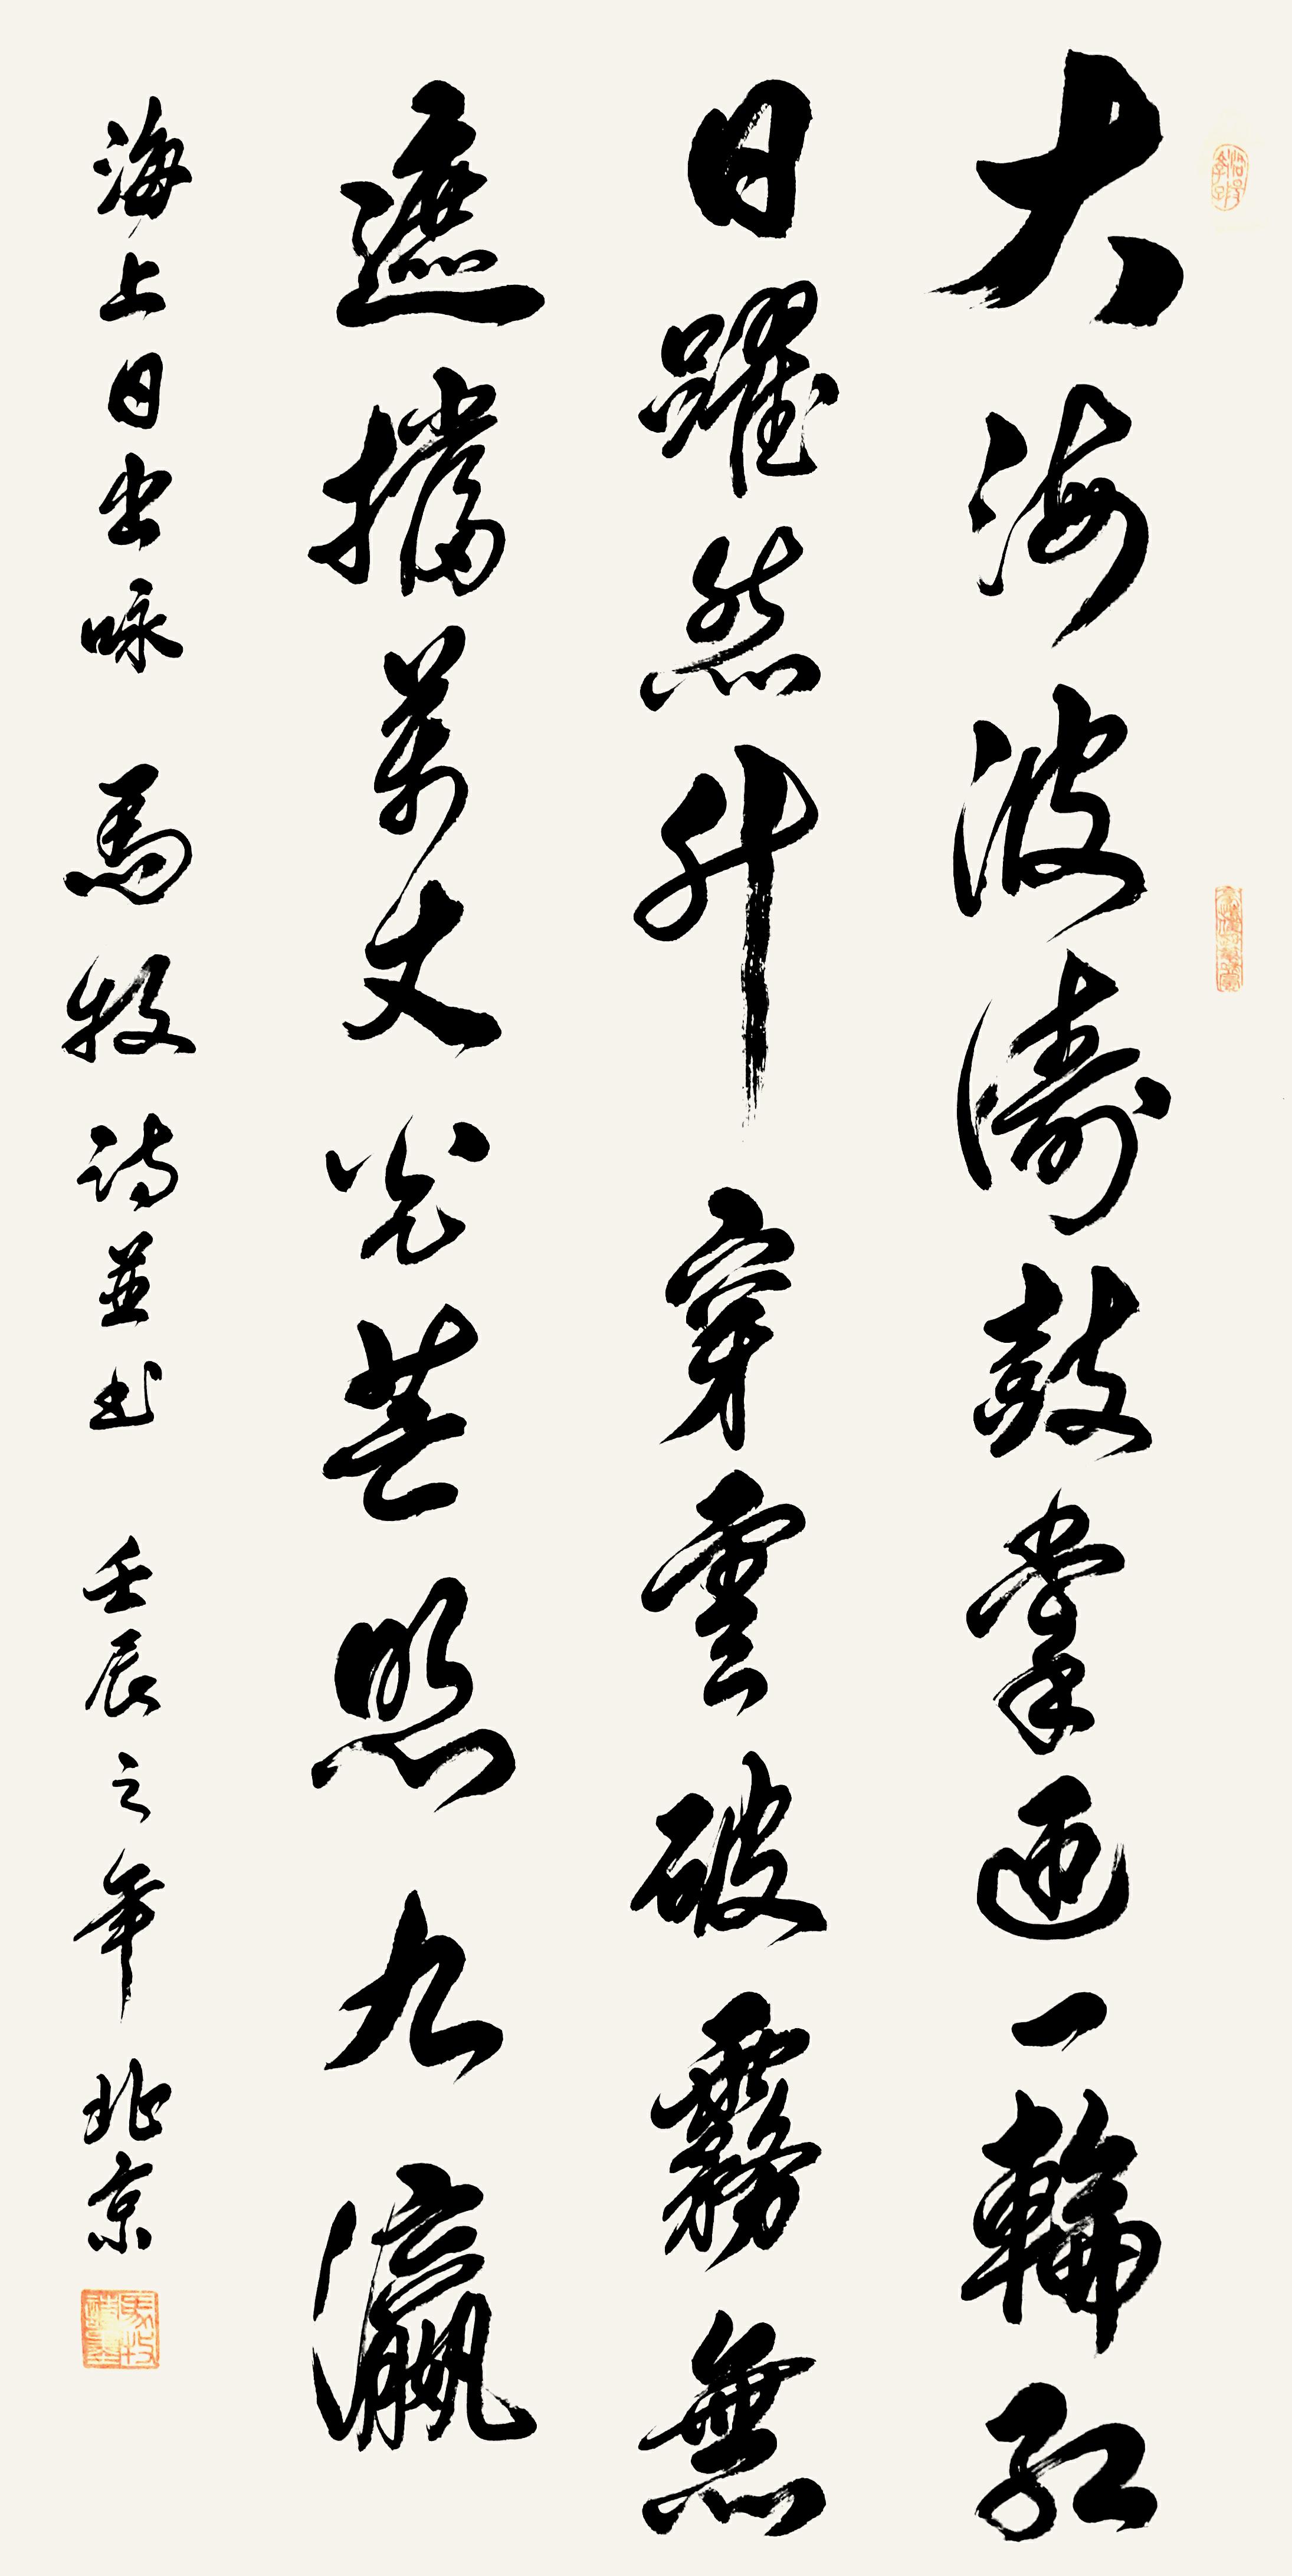 大海波濤鼓掌迎一輪紅
日躍然升穿雲破霧無
遮擋萬丈光芒照九瀛
海上日出咏 馬牧詩並书 壬辰之年 北京